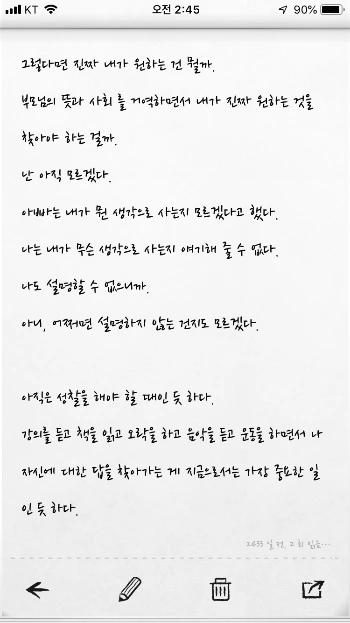 KT 오전 2:45 90%
그렇다면 진짜 내가 원하는 건 뭘까.
부모님의 뜻과 사회 를 거역하면서 내가 진짜 원하는 것을
찾아야 하는 걸까.
난 아직 모르겠다.
아빠는 내가 뭔 생각으로 사는지 모르겠다고 했다.
나는 내가 무슨 생각으로 사는지 얘기해 줄 수 없다.
나도 설명할 수 없으니까.
아니, 어쩌면 설명하지 않는 건지도 모르겠다.
아직은 성찰을 해야 할 때인 듯 하다.
강의를 듣고 책을 읽고 오락을 하고 음악을 듣고 운동을 하면서 나
자신에 대한 답을 찾아가는 게 지금으로서는 가장 중요한 일
인 듯 하다.
2633 일 전, 2 회 읽음...